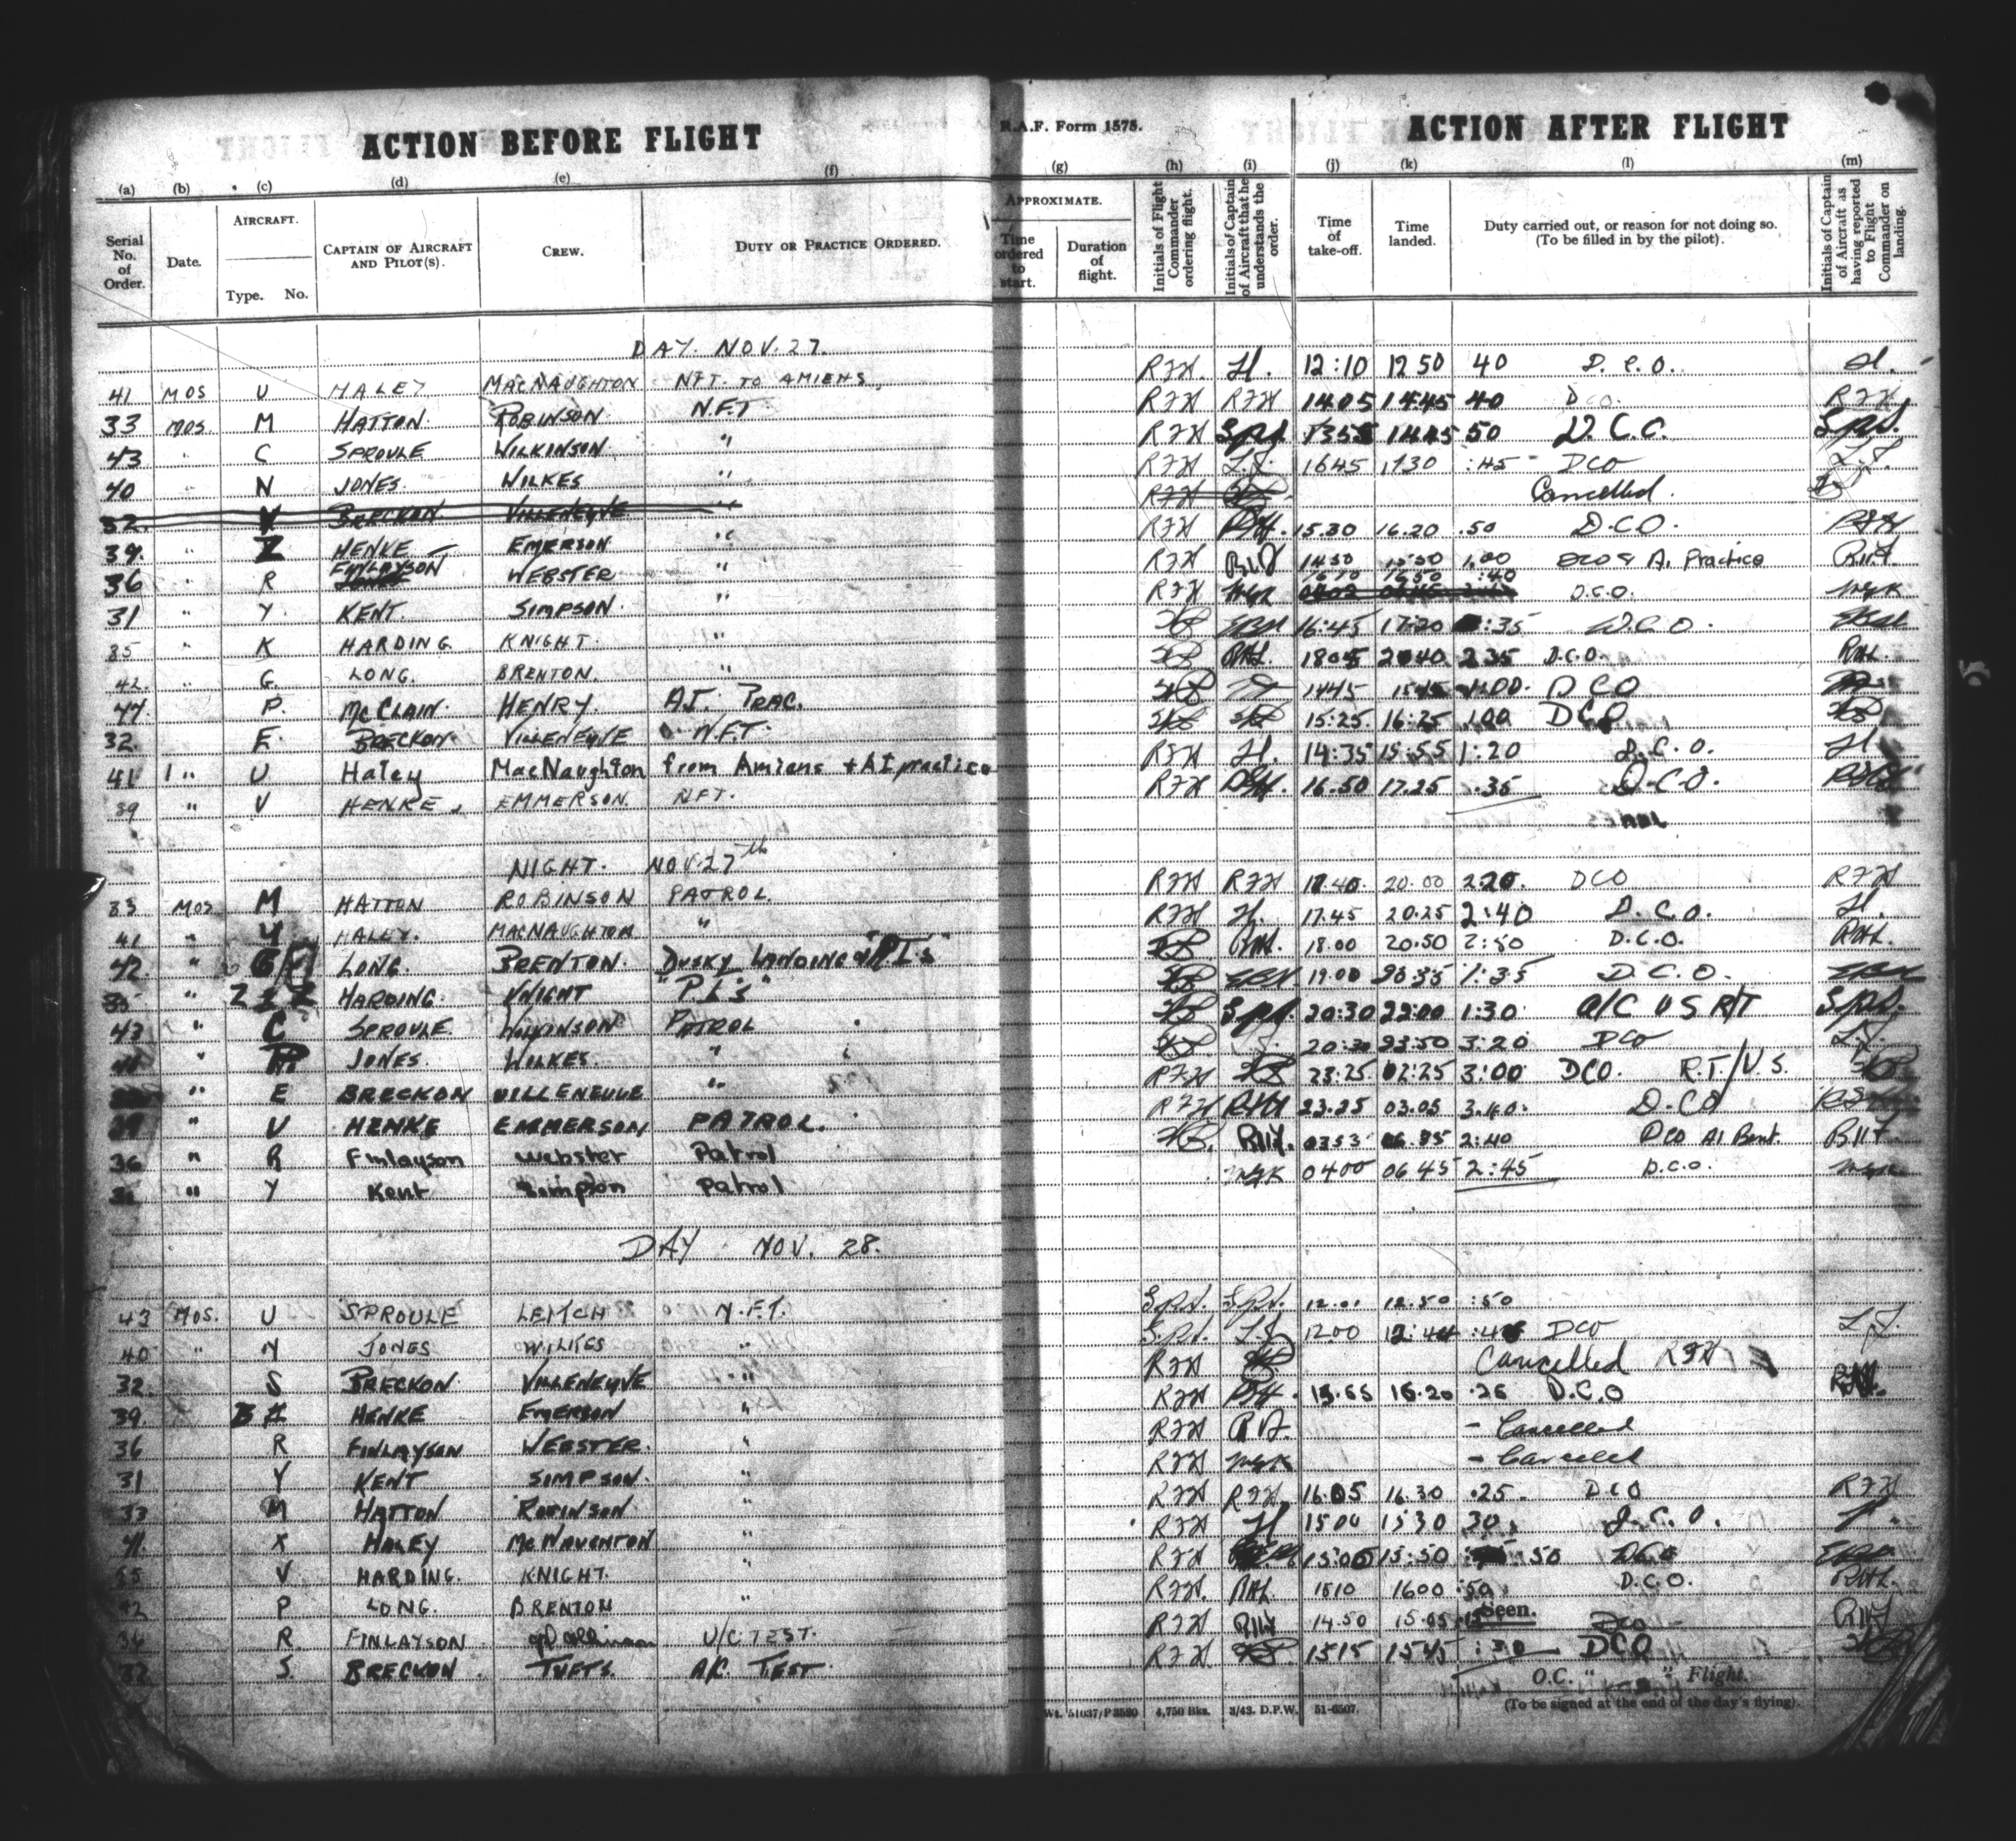 ACTION BEFORE FLIGHT R.A.F. Form 1575. ACTION AFTER FLIGHT
(a) (b) (c) (d) (e) (f) (g) (h) (i) (j) (k) (l) (m)
Serial No. of Order. Date. AIRCRAFT. Type. No. CAPTAIN OF AIRCRAFT AND PILOT(S). CREW. DUTY OR PRACTICE ORDERED. APPROXIMATE. Time ordered to start. Duration of flight. Initials of Flight Commander ordering flight. Initials of Captain of Aircraft that he understands the order. Time of take-off. Time landed. Duty carried out, or reason for not doing so. (To be filled in by the pilot). Initials of Captain of Aircraft as having reported to Flight Commander on landing.
DAY. NOV. 27.
41 MOS U HALEY MACNAUGHTON NFT. TO AMIENS. RFH H. 12:10 12 50 40 D.C.O. H.
33 MOS. M HATTON. ROBINSON N.F.T. RFH RFH 1405 1445 40 DCO. RFH
43 " C SPROULE WILKINSON " RFH 1355 1445 50 D.C.O.
40 " N JONES. WILKES " RFH L.J. 1645 1730 :45 DCO L.J.
32. BRECKON VILLENEUVE " RFH Cancelled.
39. " Z HENKE EMERSON " RFH 15.30 16.20 .50 D.C.O.
36 " R FINLAYSON WEBSTER " RFH 1430 1530 1.00 DCO & A.I. Practice
31 " Y. KENT. SIMPSON. " RFH 1610 1650 :40 D.C.O. WGK
35 " K HARDING. KNIGHT. " 16:45 17:20 :35 D.C.O.
42. " G. LONG. BRENTON. " RHL. 1805 2040 2 35 D.C.O. RHL.
44. P. MCCLAIN. HENRY. A.I. PRAC. 1445 1545 1:00. DCO
32. E. BRECKON. VILLENEUVE N.F.T. 15:25. 16:25 1.00 DCO
41 " U Haley MacNaughton from Amiens + AI practice RFH H. 14:35 15:55 1:20 D.C.O. H.
39 " V HENKE. EMMERSON. NFT. RFH 16.50 17.25 .35 D.C.O.
NIGHT. NOV. 27th
33 MOS M HATTON ROBINSON PATROL. RFH RFH 17.40. 20.00 2.20. DCO RFH
41 " HALEY. MACNAUGHTON " RFH H. 17.45 20.25 2:40 D.C.O. H.
42. " G LONG. BRENTON. DUSKY LANDING & "P.I's" RHL. 18.00 20.50 2:50 D.C.O. RHL.
35 " Z HARDING. KNIGHT "P.I.'s" 19.00 20:35 1:35 D.C.O.
43 " C SPROULE WILKINSON PATROL 20:30 22:00 1:30 A/C U S R/T
" JONES. WILKES. " 20:30 23:50 3:20 DCO L.J.
" E BRECKON VILLENEUVE " RFH 23:25 02:25 3:00 DCO. R.T./U.S.
39 " V HENKE EMMERSON PATROL. RFH 23.25 03.05 3.40. D.CO
36 " R Finlayson Webster Patrol 0353 2:40 DCO AI Bent.
31 " Y Kent Simpson Patrol WGK 0400 06 45 2:45 D.C.O.
DAY NOV. 28.
43 MOS. U SPROULE LEITCH N.F.T. 12.01 12.50 :50
40 " N JONES WILKES " L.J. 1200 12:44 DCO L.J.
32. S BRECKON VILLENEUVE " RFH Cancelled RFH
39. HENKE EMERSON " RFH 15.55 16.20 .25 D.C.O
36 R FINLAYSON WEBSTER. " RFH - Cancelled
31 Y KENT SIMPSON. " RFH WGK - Cancelled
33 M HATTON ROBINSON " RFH RFH 16.05 16.30 .25. DCO RFH
41. X HALEY MCNAUGHTON " RFH H 1500 1530 30 D.C.O.
35 V HARDING. KNIGHT. " RFH 15:00 15:50 :50 DCO
42 P LONG. BRENTON " RFH. RHL 1510 1600 :50 D.C.O. RHL.
36 R. FINLAYSON U/C TEST. RFH 14.50 15.05 DCO
32 S. BRECKON. TUFTS. A/C TEST. RFH 1515 1545 :30 DCO
Seen.
O.C. " " Flight.
(To be signed at the end of the day's flying).
Wt. 51037/P3520 4,750 Bks. 3/43. D.P.W. 51-6507.